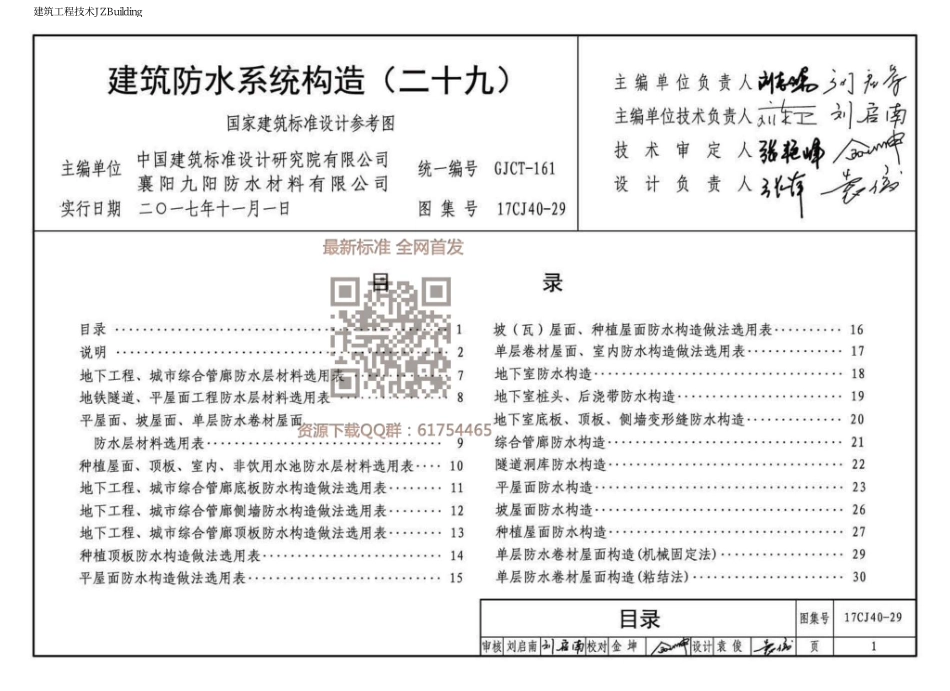 建筑工程技术JZBuilding
建筑防水系统构造（二十九）
国家建筑标准设计参考图
主编单位 中国建筑标准设计研究院有限公司
襄阳九阳防水材料有限公司
统一编号 GJCT-161
实行日期 二〇一七年十一月一日
图集号 17CJ40-29
主编单位负责人
主编单位技术负责人 刘启南
技术审定人 张艳峰
设计负责人
最新标准 全网首发
目录
目录 1
说明 2
地下工程、城市综合管廊防水层材料选用表 7
地铁隧道、平屋面工程防水层材料选用表 8
平屋面、坡屋面、单层防水卷材屋面
防水层材料选用表 9
资源下载QQ群：61754465
种植屋面、顶板、室内、非饮用水池防水层材料选用表 10
地下工程、城市综合管廊底板防水构造做法选用表 11
地下工程、城市综合管廊侧墙防水构造做法选用表 12
地下工程、城市综合管廊顶板防水构造做法选用表 13
种植顶板防水构造做法选用表 14
平屋面防水构造做法选用表 15
坡（瓦）屋面、种植屋面防水构造做法选用表 16
单层卷材屋面、室内防水构造做法选用表 17
地下室防水构造 18
地下室桩头、后浇带防水构造 19
地下室底板、顶板、侧墙变形缝防水构造 20
综合管廊防水构造 21
隧道洞库防水构造 22
平屋面防水构造 23
坡屋面防水构造 26
种植屋面防水构造 27
单层防水卷材屋面构造(机械固定法) 29
单层防水卷材屋面构造(粘结法) 30
目录 图集号 17CJ40-29
审核 刘启南 刘启南 校对 金坤 设计 袁俊 页 1